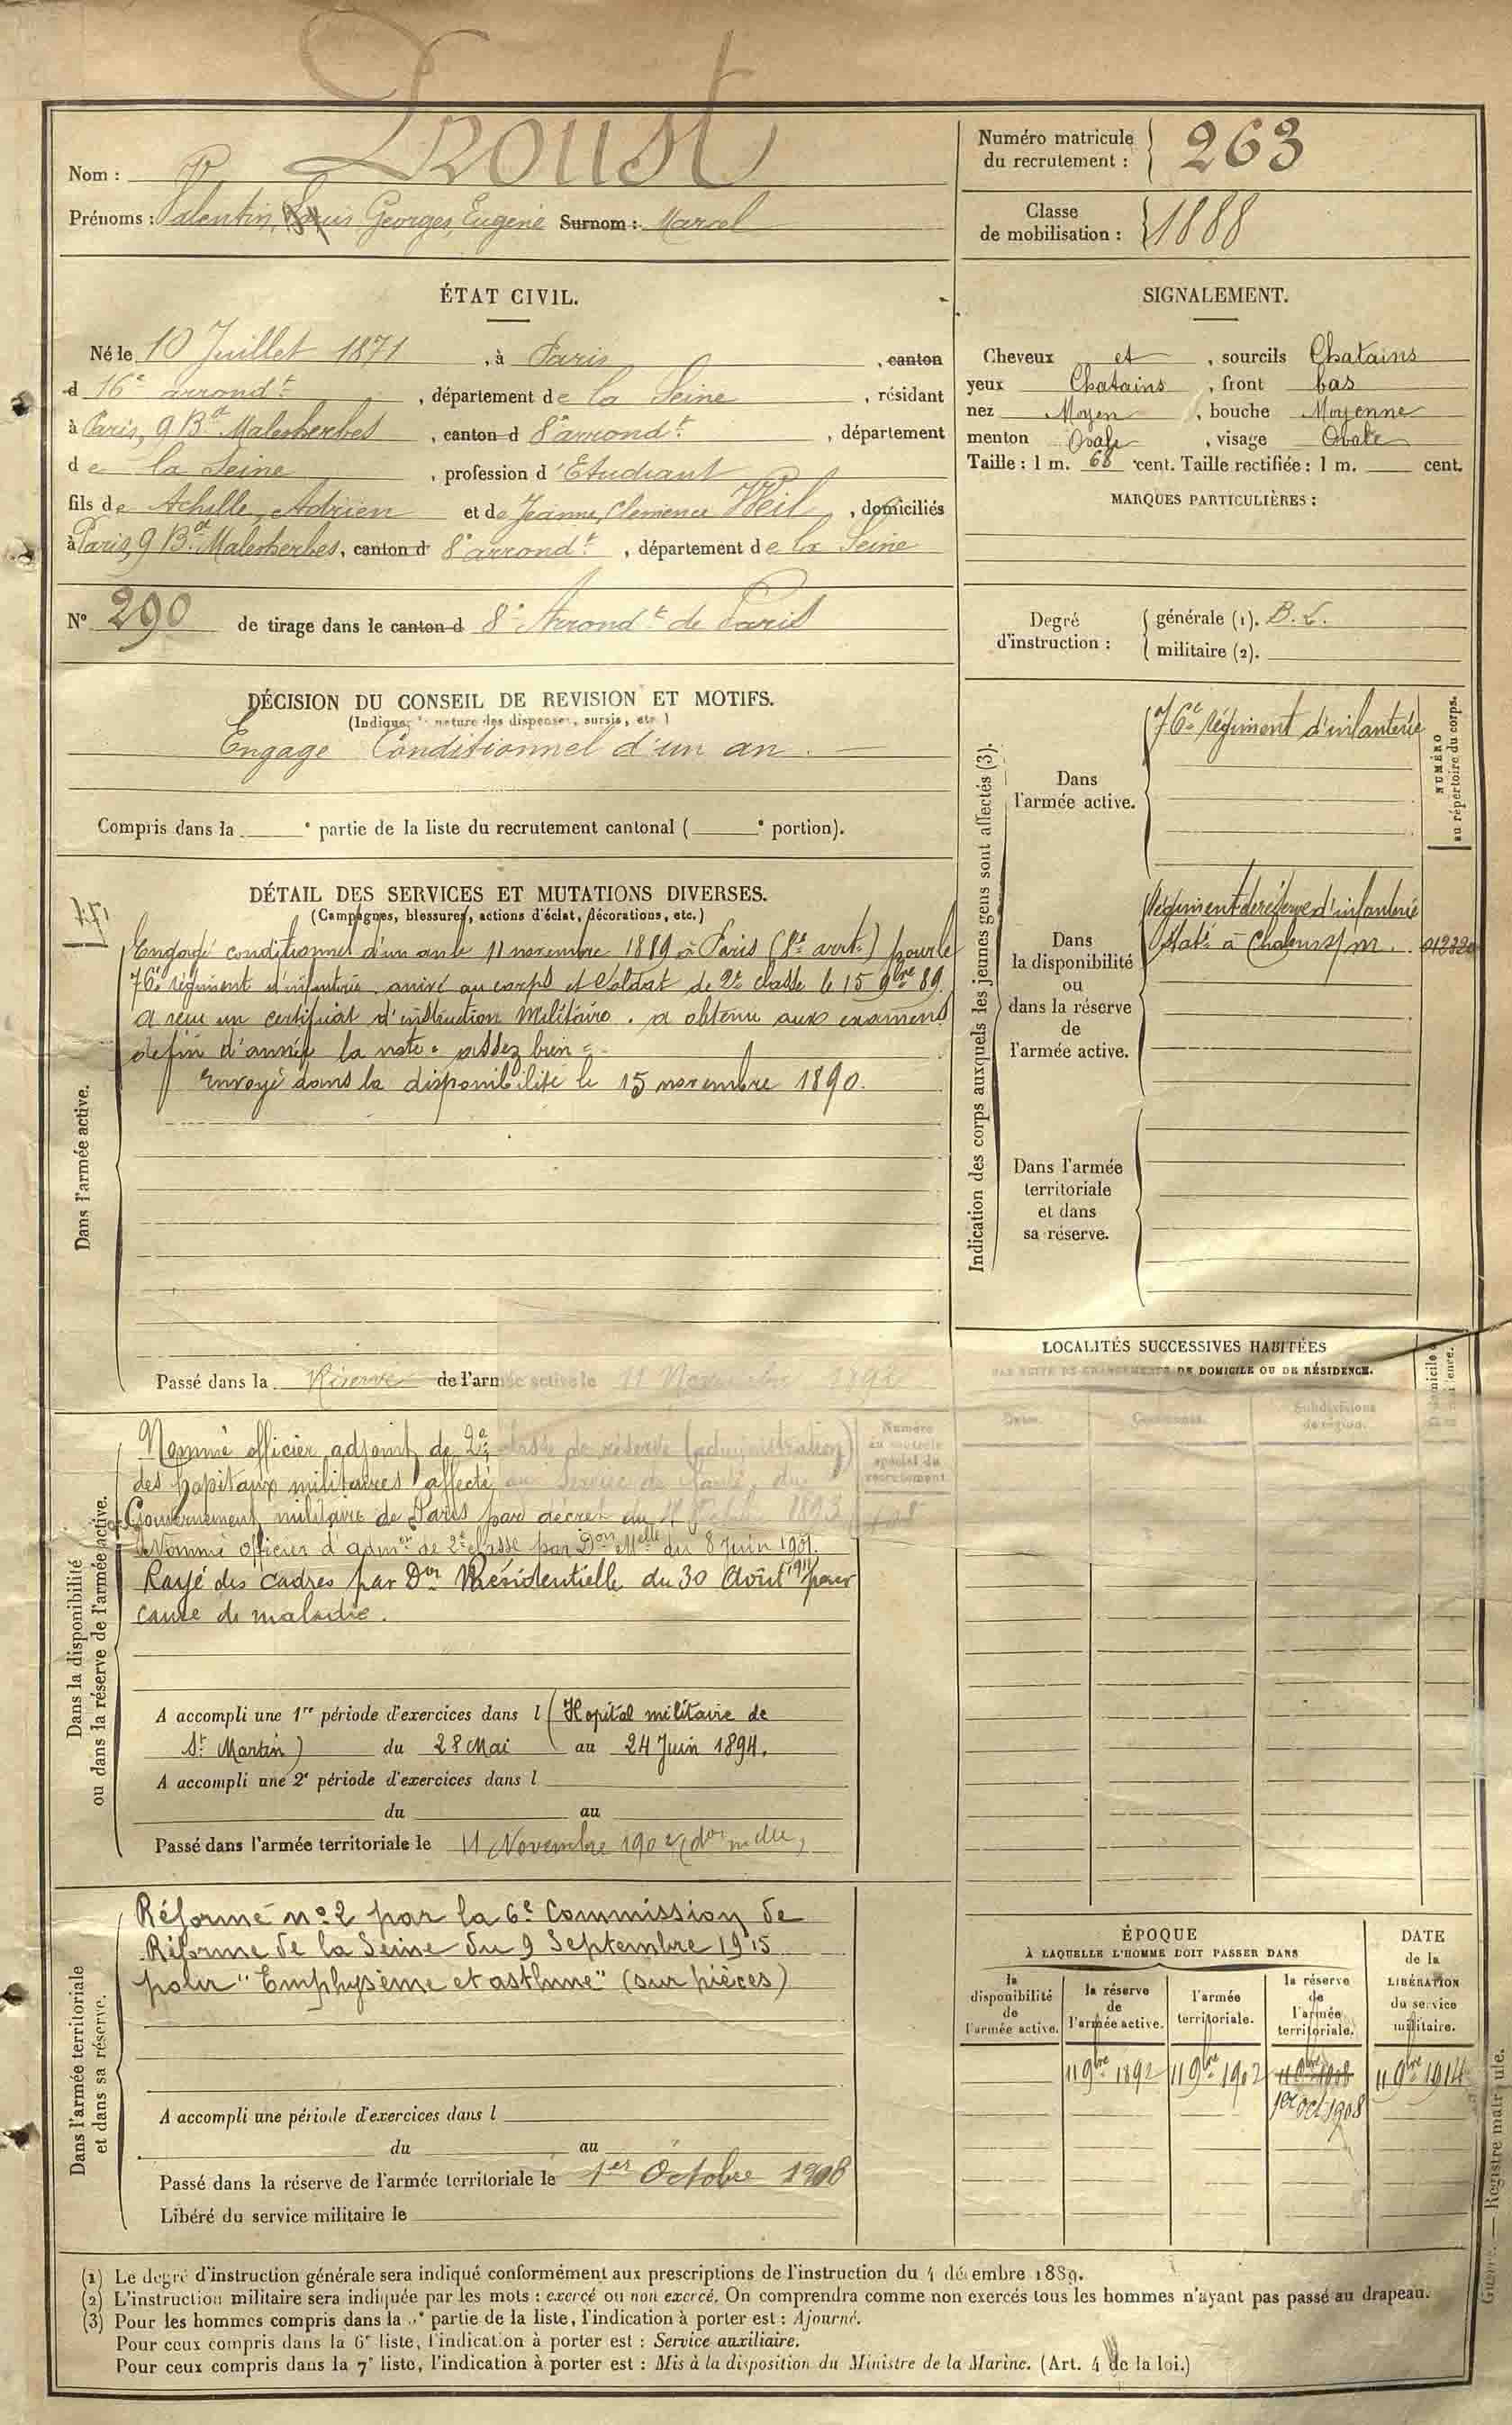 Nom : Proust
Prénoms : Valentin, Louis Georges, Eugène Surnom : Marcel
Numéro matricule du recrutement : 263
Classe de mobilisation : 1888
ÉTAT CIVIL.
Né le 10 Juillet 1871, à Paris, canton
d 16e arrondt, département de la Seine, résidant
à Paris, 9 Bd Malesherbes, canton d 8e arrondt, département
de la Seine, profession d'Etudiant
fils de Achille, Adrien et de Jeanne, Clemence Weil, domiciliés
à Paris, 9 Bd Malesherbes, canton d 8e arrondt, département de la Seine
No 290 de tirage dans le canton d 8e Arrondt de Paris
SIGNALEMENT.
Cheveux et, sourcils Chatains
yeux Chatains, front bas
nez Moyen, bouche Moyenne
menton Ovale, visage Ovale
Taille : 1 m. 68 cent. Taille rectifiée : 1 m. cent.
MARQUES PARTICULIÈRES :
Degré d'instruction :
générale (1).
militaire (2).
DÉCISION DU CONSEIL DE REVISION ET MOTIFS.
(Indiquer la nature des dispenses, sursis, etc.)
Engagé Conditionnel d'un an.
Compris dans la e partie de la liste du recrutement cantonal ( e portion).
DÉTAIL DES SERVICES ET MUTATIONS DIVERSES.
(Campagnes, blessures, actions d'éclat, décorations, etc.)
Dans l'armée active.
Engagé conditionnel d'un an le 11 novembre 1889 à Paris (8e arrt) pour le
76e régiment d'infanterie arrivé au corps et Soldat de 2e classe le 15 9bre 89.
A reçu un certificat d'instruction Militaire. a obtenu aux examens
de fin d'année la note = assez bien =
Envoyé dans la disponibilité le 15 novembre 1890.
Passé dans la Réserve de l'armée active le 11 Novembre 1892
Indication des corps auxquels les jeunes gens sont affectés (3).
NUMÉRO au répertoire du corps.
Dans l'armée active.
76e régiment d'infanterie
Dans la disponibilité ou dans la réserve de l'armée active.
Régiment de réserve d'infanterie
Staté à Chalons s/m.
Dans l'armée territoriale et dans sa réserve.
LOCALITÉS SUCCESSIVES HABITÉES
PAR SUITE DE CHANGEMENTS DE DOMICILE OU DE RÉSIDENCE.
Dates.
Communes.
Subdivisions de région.
Dans la disponibilité ou dans la réserve de l'armée active.
Numéro au contrôle spécial du recrutement
Nommé officier adjoint de 2e classe de réserve (administration)
des hopitaux militaires affecté au Service de Santé du
Gouvernement militaire de Paris par décret du
Nommé officier d'admon de 2e classe par Don Melle du 8 Juin 1901.
Rayé des cadres par Don Présidentielle du 30 Août 1911 pour
cause de maladie.
A accompli une 1re période d'exercices dans l (Hopital militaire de
St Martin) du 28 Mai au 24 Juin 1894.
A accompli une 2e période d'exercices dans l
du au
Passé dans l'armée territoriale le 11 Novembre 1902
Dans l'armée territoriale et dans sa réserve.
Réformé no 2 par la 6e Commission de
Réforme de la Seine du 9 Septembre 1915
pour "Emphysème et asthme" (sur pièces)
A accompli une période d'exercices dans l
du au
Passé dans la réserve de l'armée territoriale le 1er Octobre 1908
Libéré du service militaire le
ÉPOQUE
À LAQUELLE L'HOMME DOIT PASSER DANS
la disponibilité de l'armée active.
la réserve de l'armée active.
l'armée territoriale.
la réserve de l'armée territoriale.
DATE de la LIBÉRATION du service militaire.
11 9bre 1892 11 9bre 1902 11 9bre 1908 11 9bre 1914
1er oct 1908
(1) Le degré d'instruction générale sera indiqué conformément aux prescriptions de l'instruction du 4 décembre 1889.
(2) L'instruction militaire sera indiquée par les mots : exercé ou non exercé. On comprendra comme non exercés tous les hommes n'ayant pas passé au drapeau.
(3) Pour les hommes compris dans la e partie de la liste, l'indication à porter est : Ajourné.
Pour ceux compris dans la 6e liste, l'indication à porter est : Service auxiliaire.
Pour ceux compris dans la 7e liste, l'indication à porter est : Mis à la disposition du Ministre de la Marine. (Art. 4 de la loi.)
Guerre. — Registre matricule.